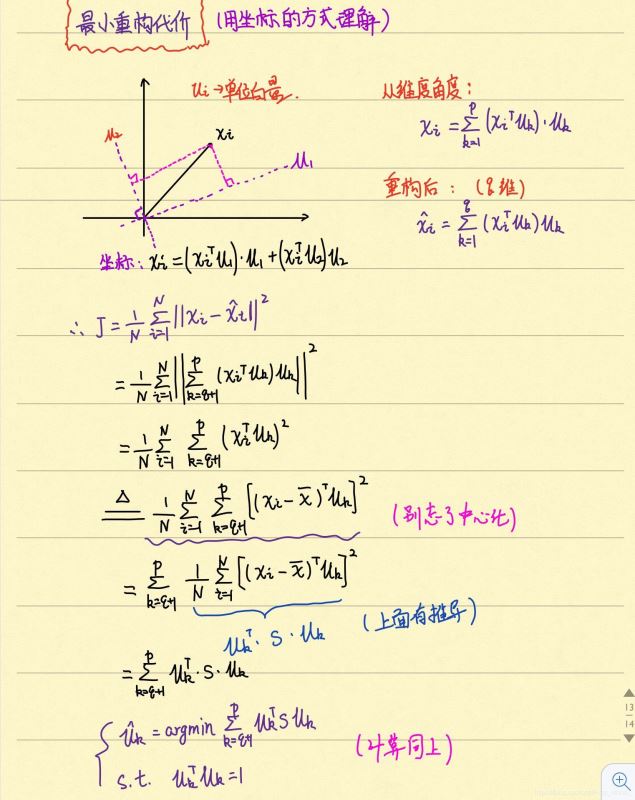 最小重构代价 (用坐标的方式理解)
uᵢ→单位向量. 从维度角度:
u₂ xᵢ u₁ xᵢ = Σₖ₌₁ᵖ (xᵢᵀuₖ)·uₖ
重构后: (q维)
x̂ᵢ = Σₖ₌₁^q (xᵢᵀuₖ)uₖ
坐标: xᵢ = (xᵢᵀu₁)·u₁ + (xᵢᵀu₂)u₂
∴ J = 1/N Σᵢ₌₁ᴺ ||xᵢ - x̂ᵢ||²
= 1/N Σᵢ₌₁ᴺ ||Σₖ₌q₊₁ᵖ (xᵢᵀuₖ)uₖ||²
= 1/N Σᵢ₌₁ᴺ Σₖ₌q₊₁ᵖ (xᵢᵀuₖ)²
≜ 1/N Σᵢ₌₁ᴺ Σₖ₌q₊₁ᵖ [(xᵢ - x̄)ᵀuₖ]² (别忘了中心化)
= Σₖ₌q₊₁ᵖ 1/N Σᵢ₌₁ᴺ [(xᵢ - x̄)ᵀuₖ]²
uₖᵀ·S·uₖ (上面有推导)
= Σₖ₌q₊₁ᵖ uₖᵀ·S·uₖ
ûₖ = argmin Σₖ₌q₊₁ᵖ uₖᵀSuₖ
(计算同上)
s.t. uₖᵀuₖ=1
13
14